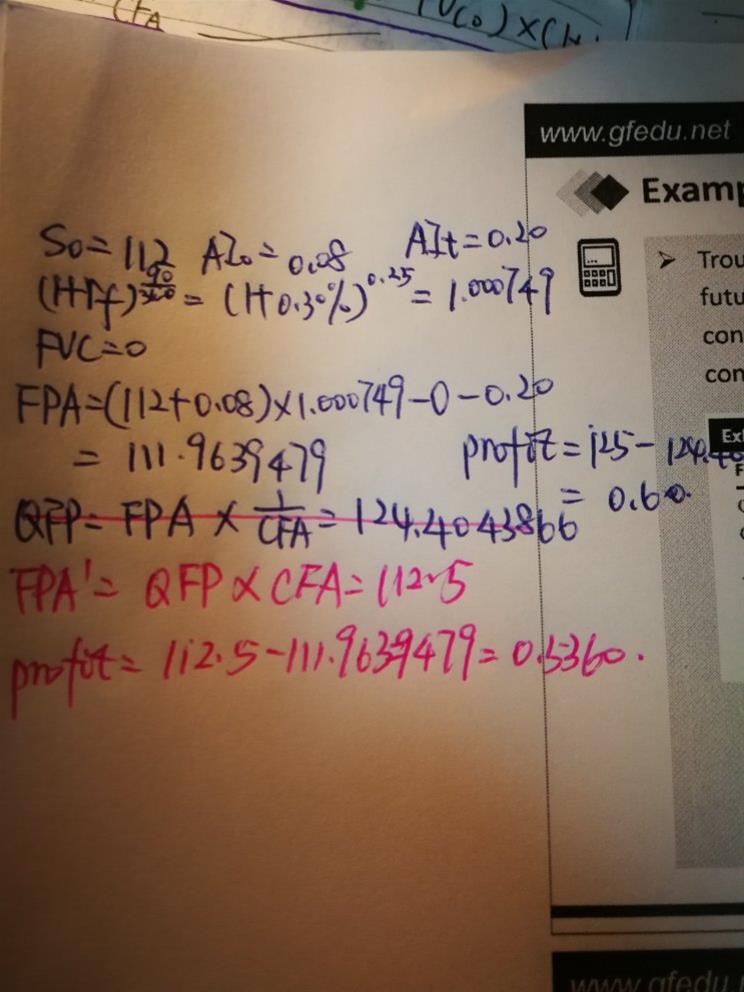 CFA
(VC₀)×(1+
www.gfedu.net
Examp
➢ Trou
futu
con
con
Ex
F
S₀=112 AI₀=0.08 AIt=0.20
(1+rf)^90/360=(1+0.30%)^0.25=1.000749
FVC=0
FPA=(112+0.08)×1.000749-0-0.20
=111.9639479
profit=125-124.40
=0.60.
QFP=FPA×1/CFA=124.4043866
FPA'=QFP×CFA=112.5
profit=112.5-111.9639479=0.5360.
www.gfedu.net